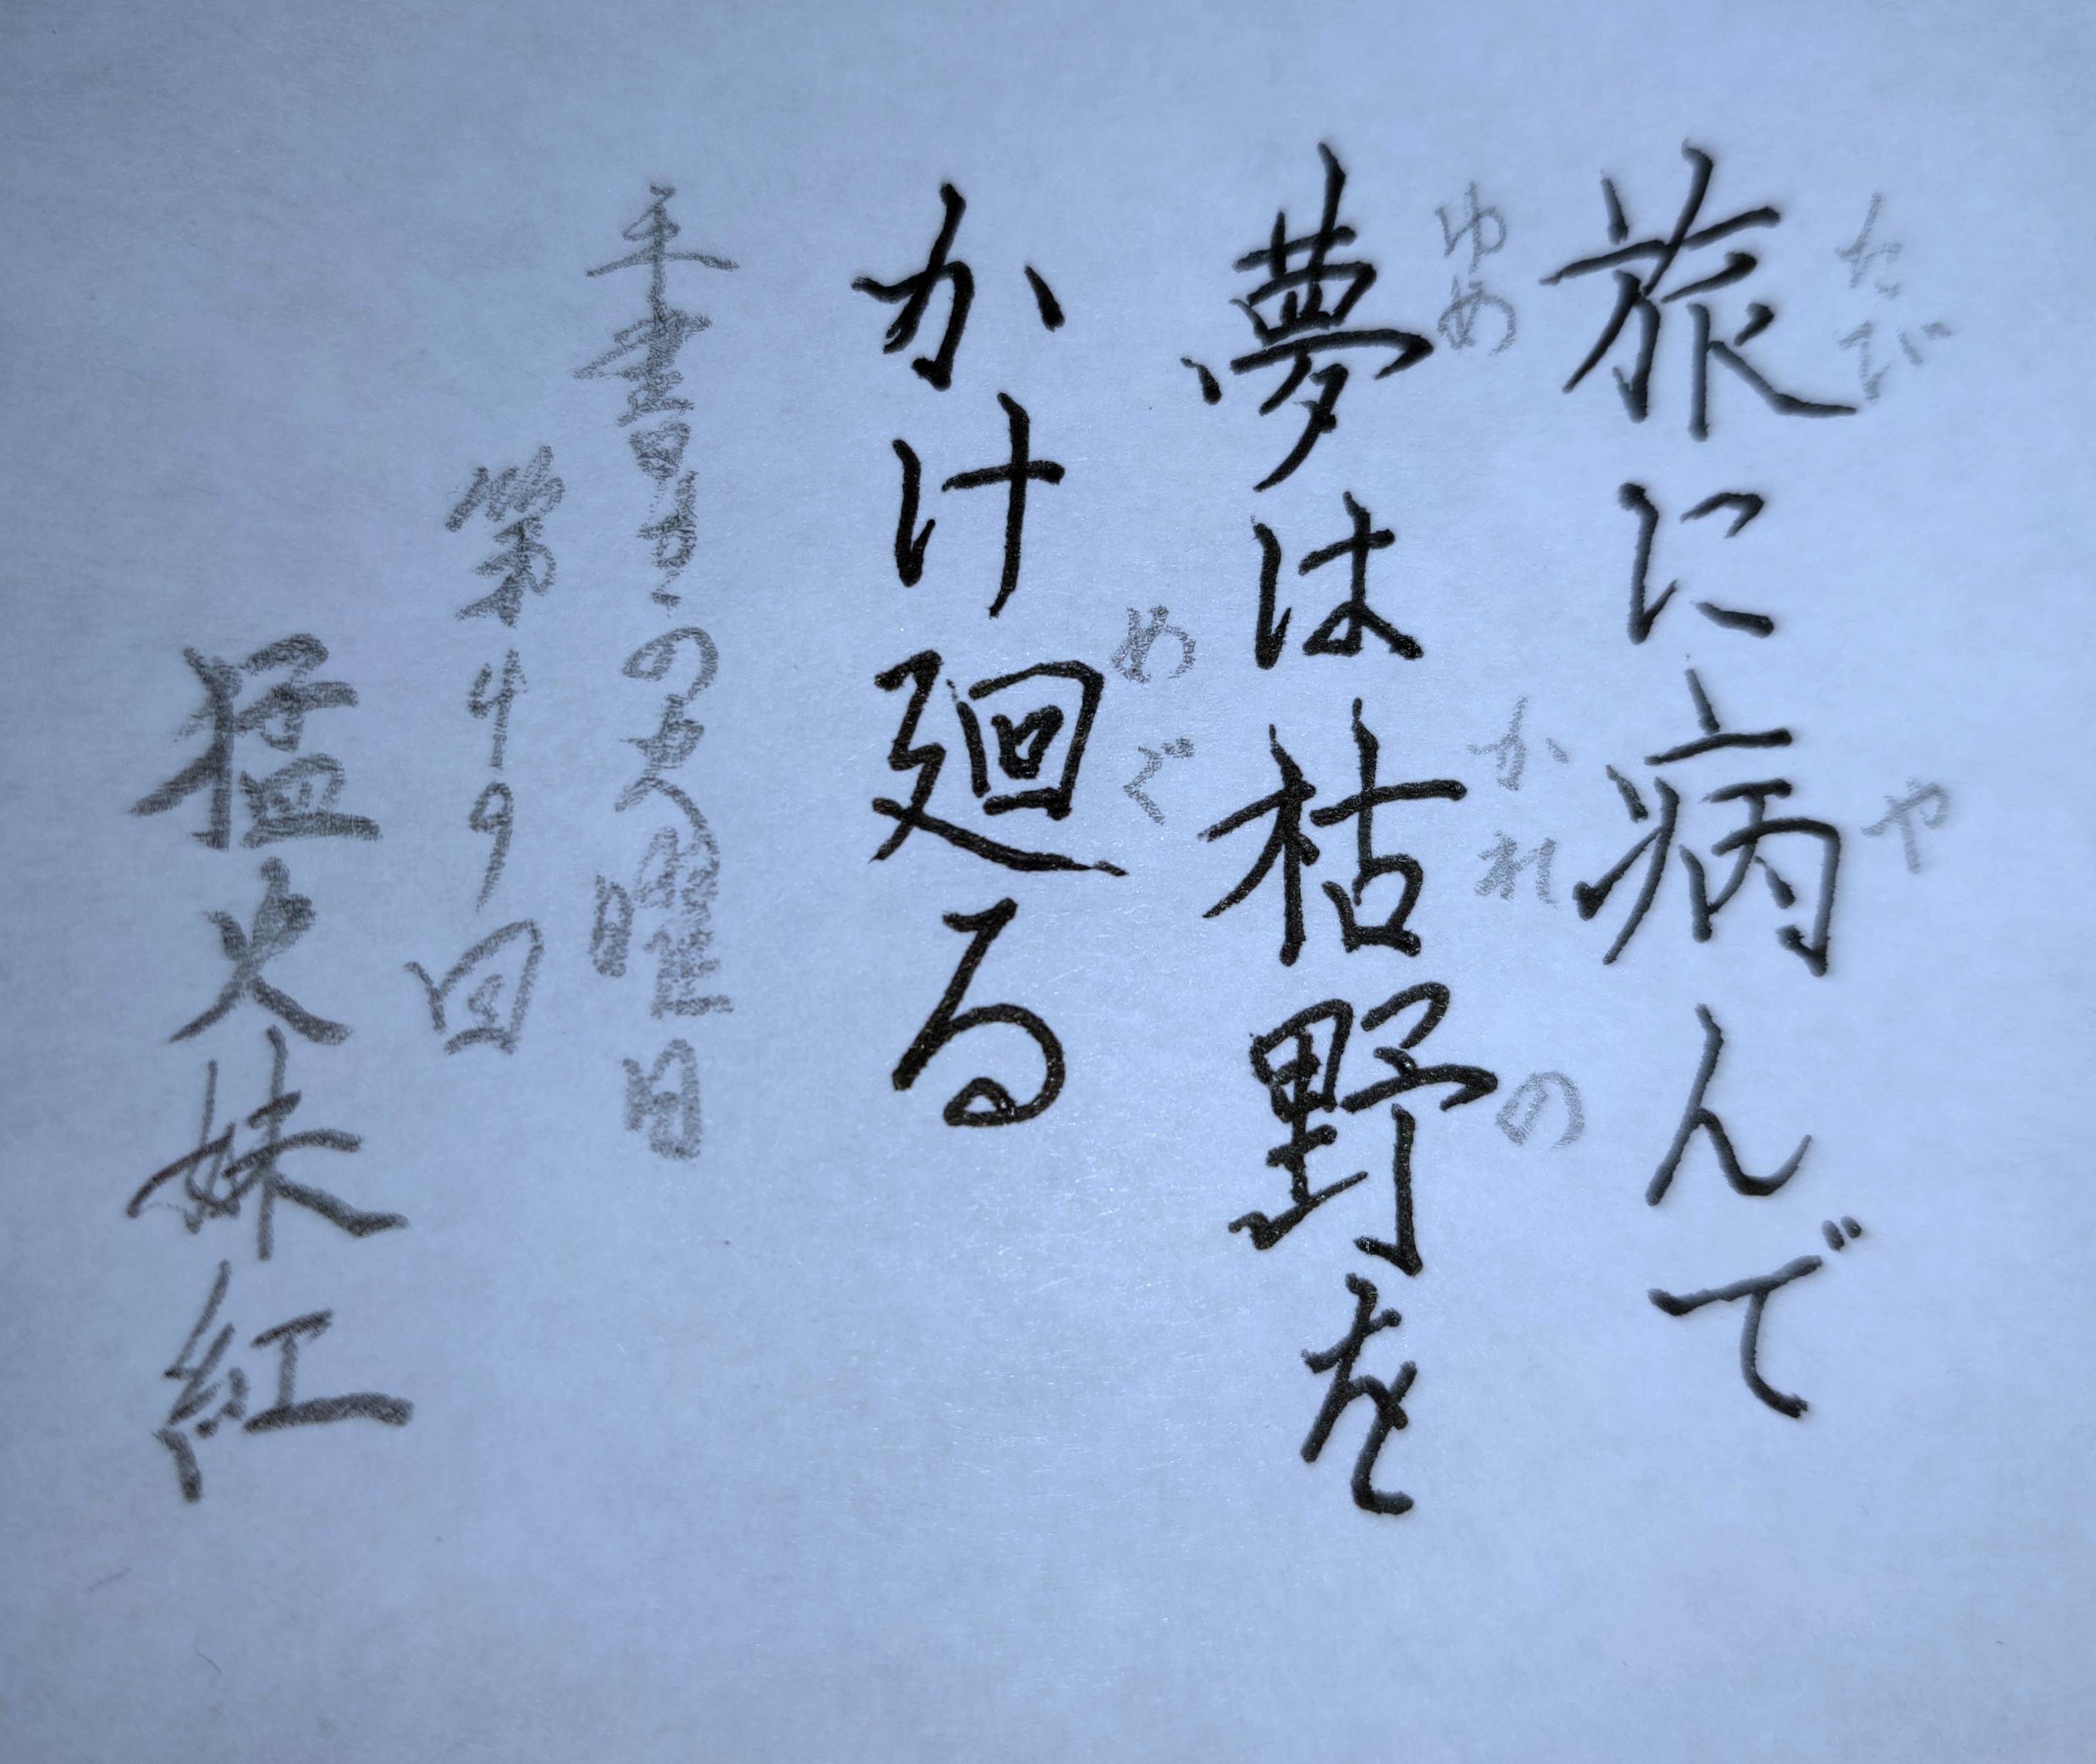 たび や
旅に病んで
ゆめ かれ の
夢は枯野を
めぐ
かけ廻る
手書きの火曜日
第49回
猛火妹紅